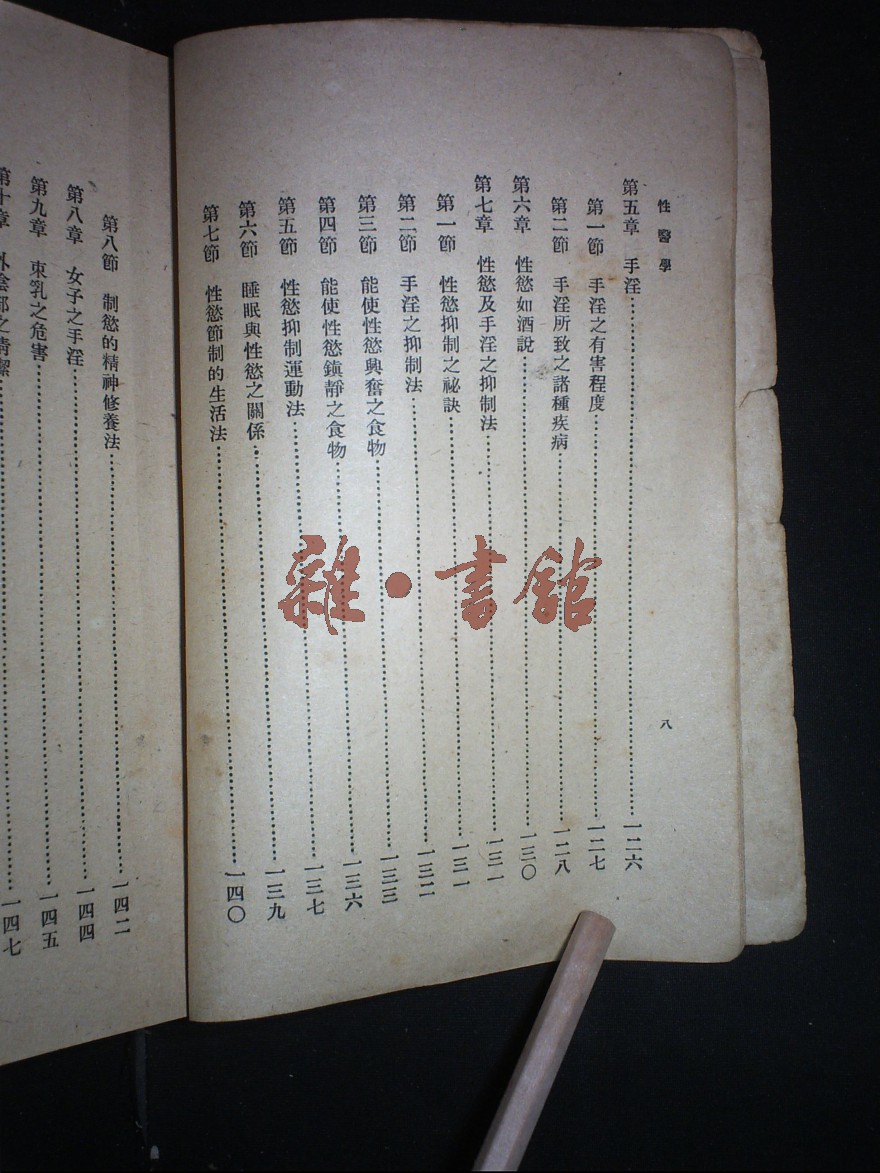 性醫學
八
第五章 手淫…………一二六
第一節 手淫之有害程度…………一二七
第二節 手淫所致之諸種疾病…………一二八
第六章 性慾如酒說…………一三〇
第七章 性慾及手淫之抑制法…………一三一
第一節 性慾抑制之祕訣…………一三一
第二節 手淫之抑制法…………一三二
第三節 能使性慾興奮之食物…………一三三
第四節 能使性慾鎭靜之食物…………一三六
第五節 性慾抑制運動法…………一三七
第六節 睡眠與性慾之關係…………一三九
第七節 性慾節制的生活法…………一四〇
第八節 制慾的精神修養法…………一四二
第八章 女子之手淫…………一四四
第九章 束乳之危害…………一四五
第十章 外陰部之清潔…………一四七
雜·書館